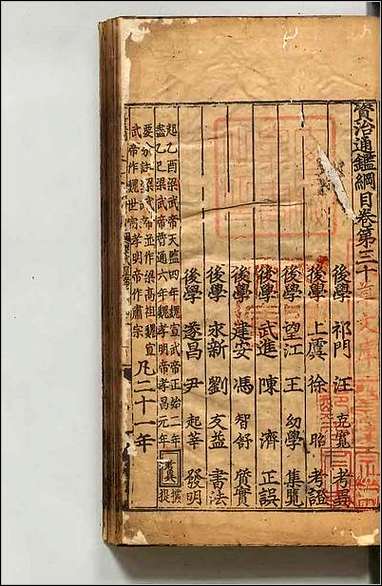 資治通鑑綱目卷第三十
後學 祁門 汪 克寬 考異
後學 上虞 徐 昭 考證
後學 望江 王 幼學 集覽
後學 武進 陳 濟 正誤
後學 建安 馮 智舒 質實
後學 永新 劉 友益 書法
後學 遂昌 尹 起莘 發明
起乙酉梁武帝天監四年魏宣武帝正始二年
盡乙巳梁武帝普通六年魏孝明帝孝昌元年
凡二十一年
考異
武帝作梁高祖魏宣
武帝作魏世宗孝明帝作肅宗